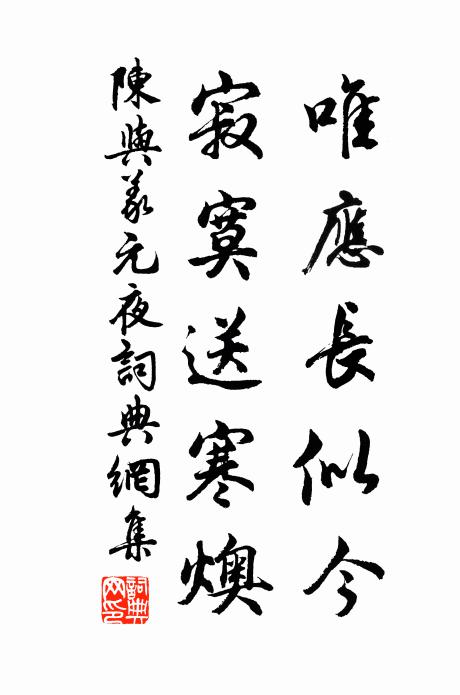 唯應長似今
寂寞送寒燠
陳與義元夜詞典網集
詞典網印